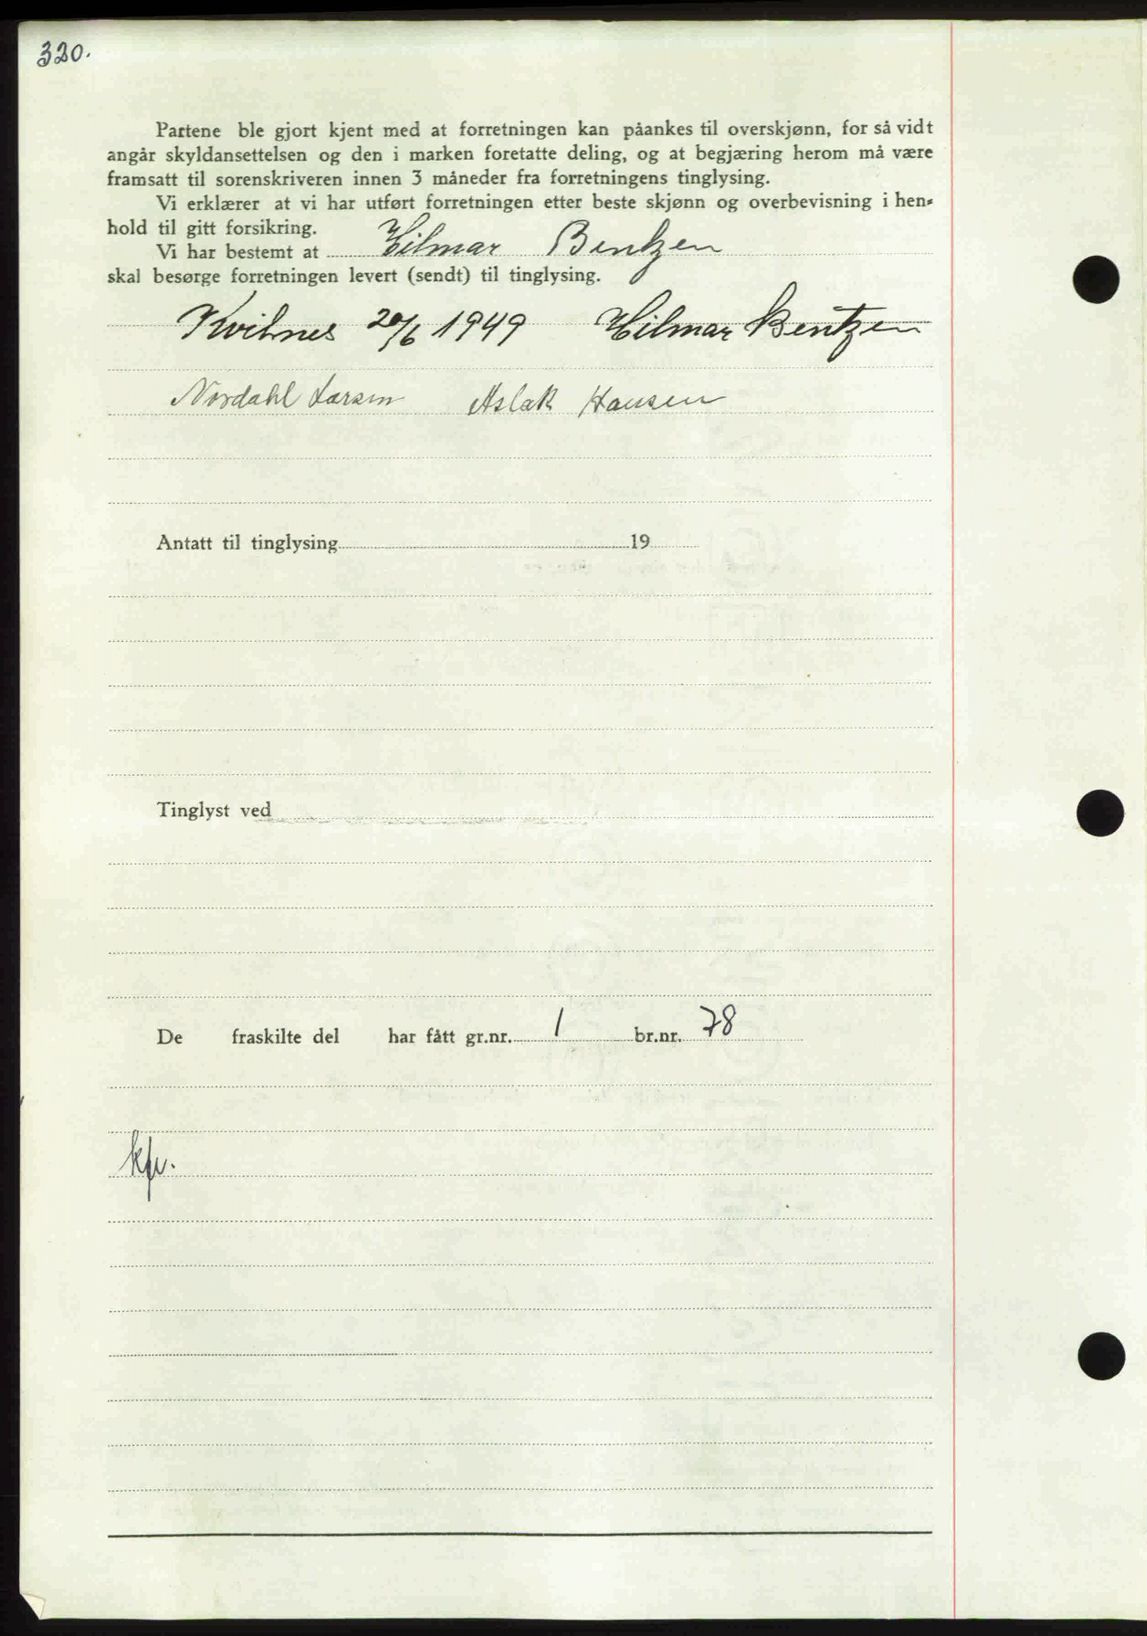 320.
Partene ble gjort kjent med at forretningen kan påankes til overskjønn, for så vidt
angår skyldansettelsen og den i marken foretatte deling, og at begjæring herom må være
framsatt til sorenskriveren innen 3 måneder fra forretningens tinglysing.
Vi erklærer at vi har utført forretningen etter beste skjønn og overbevisning i hen-
hold til gitt forsikring.
Vi har bestemt at Hilmar Bentzen
skal besørge forretningen levert (sendt) til tinglysing.
Kvitnes 20/6 1949 Hilmar Bentzen
Nordahl Larsen Aslak Hansen
Antatt til tinglysing 19
Tinglyst ved
De fraskilte del har fått gr.nr. 1 br.nr. 78